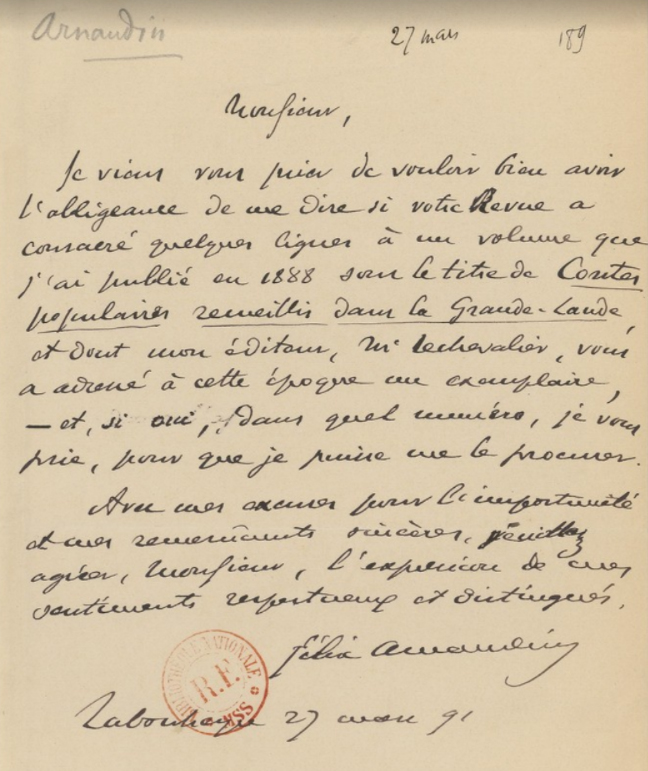 Arnaudin
27 mars 189
Monsieur,
Je viens vous prier de vouloir bien avoir
l'obligeance de me dire si votre Revue a
consacré quelques lignes à un volume que
j'ai publié en 1888 sous le titre de Contes
populaires recueillis dans la Grande-Lande,
et dont mon éditeur, Mr Lechevalier, vous
a adressé à cette époque un exemplaire,
— et, si oui, dans quel numéro, je vous
prie, pour que je puisse me le procurer.
Avec mes excuses pour l'importunité
et mes remerciments sincères, veuillez
agréer, Monsieur, l'expression de mes
sentiments respectueux et distingués.
Félix Arnaudin
BIBLIOTHÈQUE NATIONALE
R.F.
MSS
Labouheyre 27 mars 91